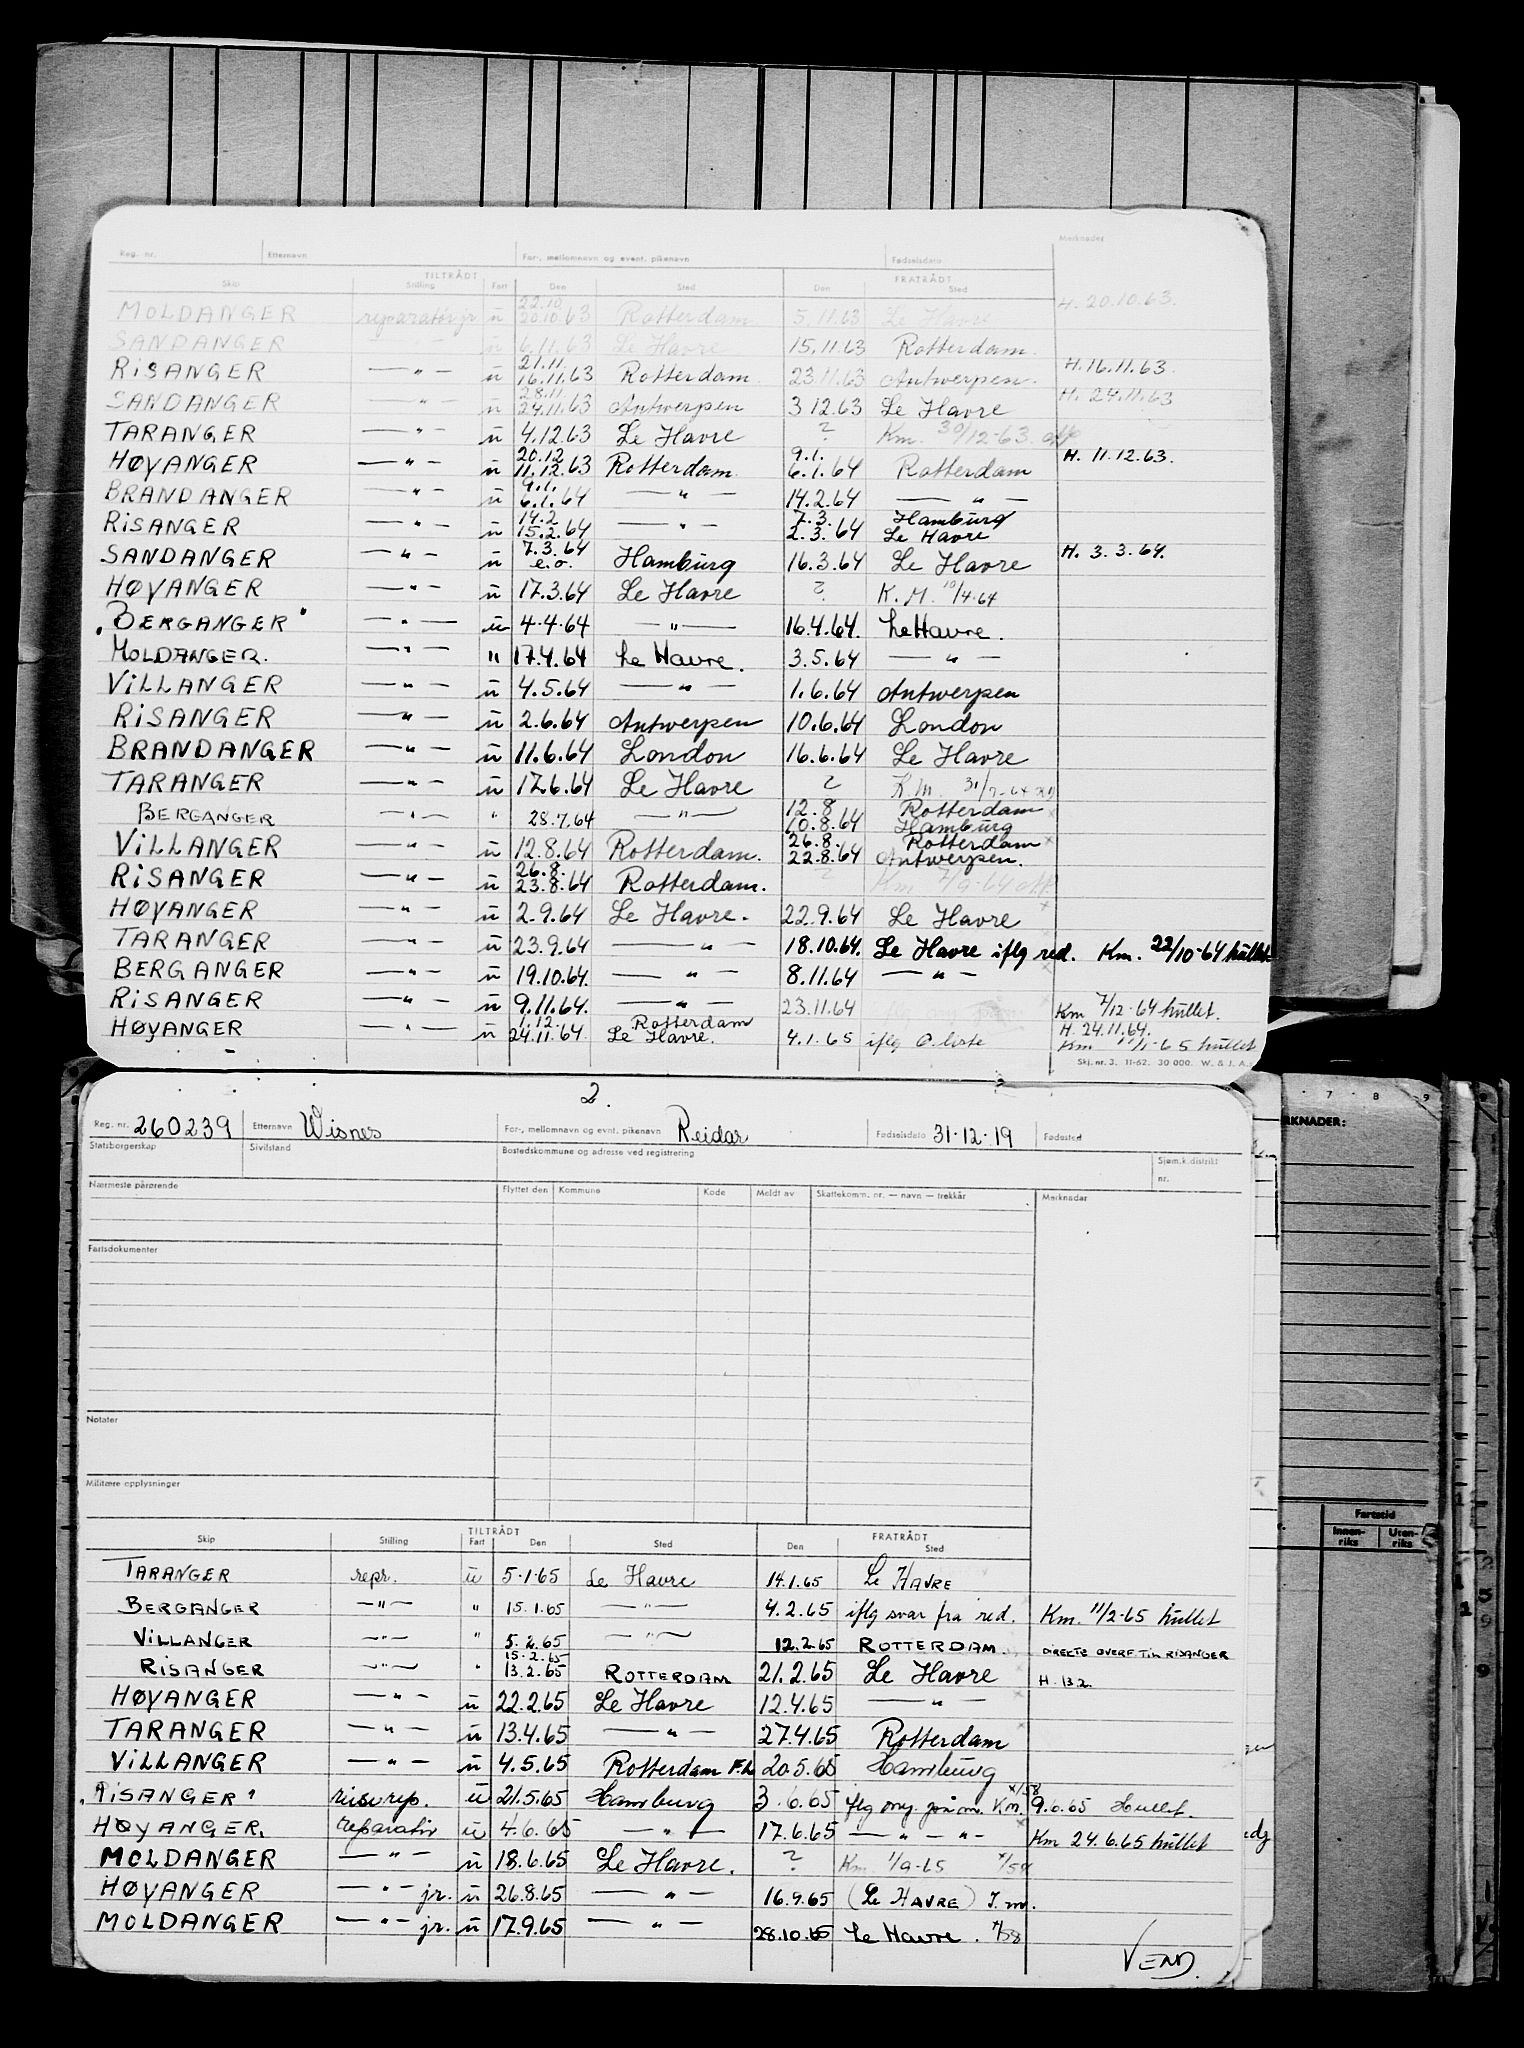 Reg. nr. Etternavn For-, mellomnavn og event. pikenavn Fødselsdato Merknader
TILTRÅDT FRATRÅDT
Skip Stilling Fart Den Sted Den Sted
MOLDANGER reparatør jr ü 22.10 20.10.63 Rotterdam 5.11.63 Le Havre H. 20.10.63.
SANDANGER ü 6.11.63 Le Havre 15.11.63 Rotterdam.
RISANGER —"— ü 21.11. 16.11.63 Rotterdam. 23.11.63 Antwerpen. H.16.11.63
SANDANGER —"— ü 28.11. 24.11.63 Antwerpen 3 12.63 Le Havre H. 24.11.63
TARANGER —"— ü 4.12.63 Le Havre ? Km. 30/12-63.
HØYANGER —"— ü 20.12 11.12.63 Rotterdam. 9.1. 6.1.64 Rotterdam H. 11.12.63.
BRANDANGER —"— ü 9.1. 6.1.64 —"— 14.2.64 —"—
RISANGER —"— ü 14.2 15.2.64 —"— 7.3. 2.3.64 Hamburg Le Havre
SANDANGER —"— ü 7.3.64 e.o. Hamburg 16.3.64 Le Havre H. 3.3.64.
HØYANGER —"— ü 17.3.64 Le Havre ? K.M. 10/4-64
"BERGANGER" —"— ü 4.4.64 —"— 16.4.64. Le Havre.
MOLDANGER. —"— " 17.4.64 Le Havre. 3.5.64 —"—
VILLANGER —"— ü 4.5.64 —"— 1.6.64 Antwerpen
RISANGER —"— ü 2.6.64 Antwerpen 10.6.64 London
BRANDANGER —"— ü 11.6.64 London 16.6.64 Le Havre
TARANGER —"— ü 17.6.64 Le Havre ? K.M. 31/7-64
BERGANGER —"— " 28.7.64 —"— 12.8. 10.8.64 Rotterdam Hamburg
VILLANGER —"— ü 12.8.64 Rotterdam. 26.8. 22.8.64 Rotterdam Antwerpen.
RISANGER —"— ü 26.8. 23.8.64 Rotterdam. ? Km 7/9-64
HØYANGER —"— ü 2.9.64 Le Havre. 22.9.64 Le Havre
TARANGER —"— ü 23.9.64 —"— 18.10.64. Le Havre iflg red. Km. 22/10-64 hullet.
BERGANGER —"— ü 19.10.64. —"— 8.11.64 —"—
RISANGER —"— ü 9.11.64. —"— 23.11.64 Km 7/12-64 hullet.
HØYANGER —"— ü 1.12. 24.11.64. Rotterdam Le Havre. 4.1.65 iflg O. liste H. 24.11.64. Km 11/1-65 hullet
Skj. nr. 3. 11-62. 30 000. W. & J. A.
2.
Reg. nr. 260239 Etternavn Wisnes For-, mellomnavn og evnt. pikenavn Reidar Fødselsdato 31-12-19 Fødested
Statsborgerskap Sivilstand Bostedskommune og adresse ved registrering Sjøm.k.distrikt nr.
Nærmeste pårørende Flyttet den Kommune Kode Meldt av Skattekomm. nr. — navn — trekkår Merknader
Fartsdokumenter
Notater
Militære opplysninger
TILTRÅDT FRATRÅDT
Skip Stilling Fart Den Sted Den Sted
TARANGER repr. ü 5.1.65 Le Havre 14.1.65 Le HAVRE
BERGANGER —"— " 15.1.65 —"— 4.2.65 iflg svar fra red. Km. 11/2-65 hullet
VILLANGER —"— " 5.2.65 —"— 12.2.65 ROTTERDAM. DIREKTE OVERF. TIL RISANGER
RISANGER —"— " 15.2.65 13.2.65 ROTTERDAM 21.2.65 Le Havre H. 13.2.
HØYANGER —"— ü 22.2.65 Le Havre 12.4.65 —"—
TARANGER —"— ü 13.4.65 —"— 27.4.65 Rotterdam
VILLANGER —"— ü 4.5.65 Rotterdam 20.5.65 Hamburg
"RISANGER" ü 21.5.65 Hamburg 3.6.65 iflg Km. x/58 9.6.65 Hullet.
HØYANGER. reparatør ü 4.6.65 —"— 17.6.65 —"—"— Km 24.6.65 hullet
MOLDANGER —"— ü 18.6.65 Le Havre. ? Km 1/9-65 x/58
HØYANGER —"— jr. ü 26.8.65 —"— 16.9.65 (Le HAVRE) I.m.
MOLDANGER —"— jr. ü 17.9.65 —"— 28.10.65 Le Havre. x/58
VEND.
7 8 9
RKNADER:
Fartstid
Innen-riks Uten-riks